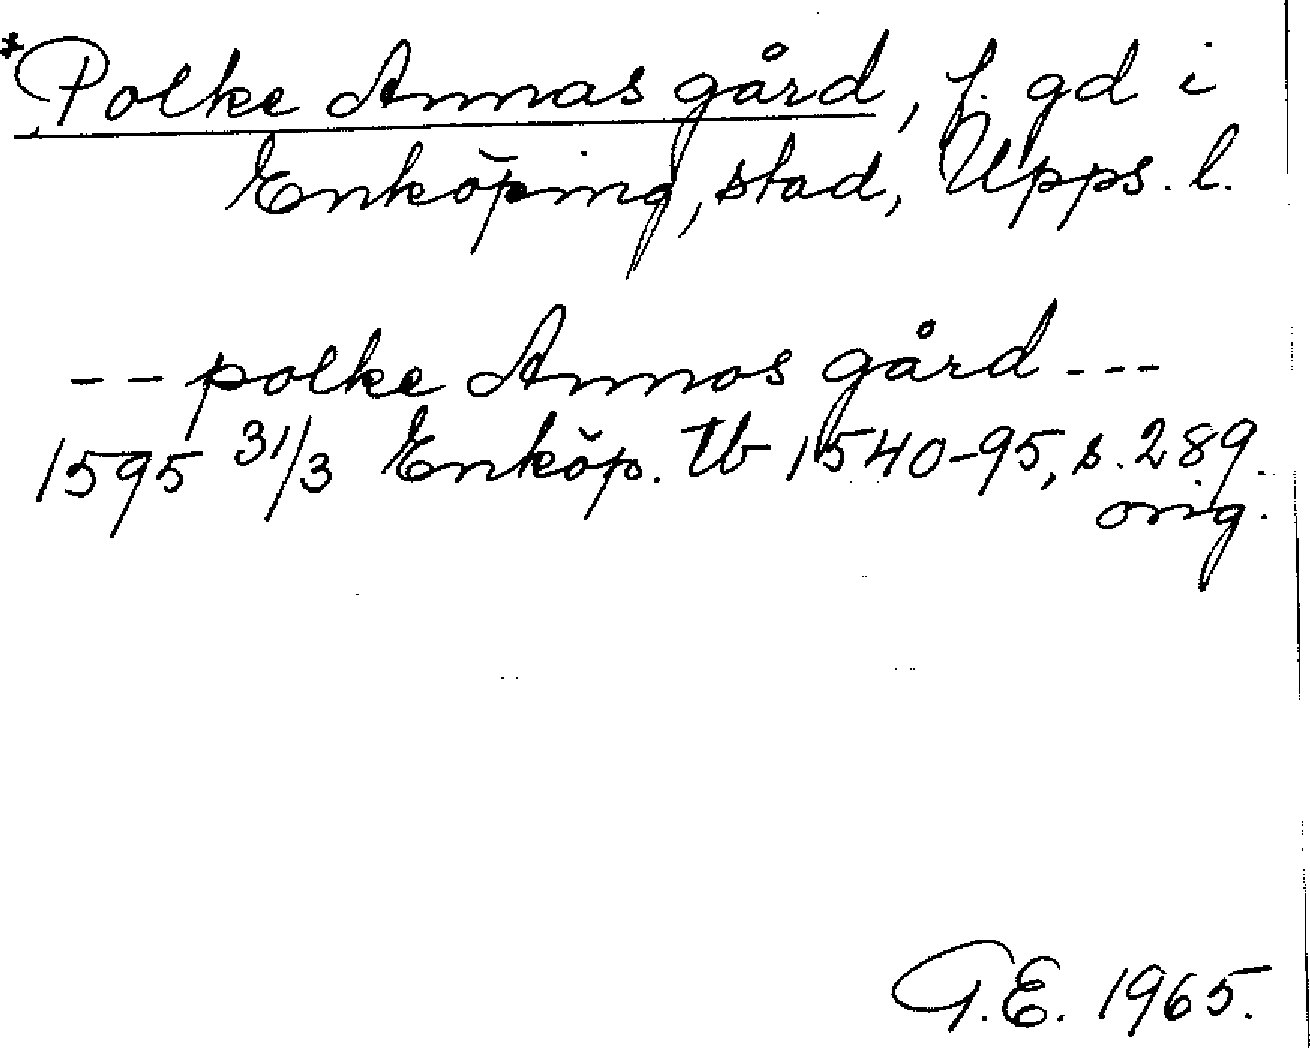 *Polke Annas gård, f. gd i
Enköping, stad, Upps. l.
-- polke Annos gård ---
1595 31/3 Enköp. Tb 1540-95, s. 289.
orig.
G.E. 1965.